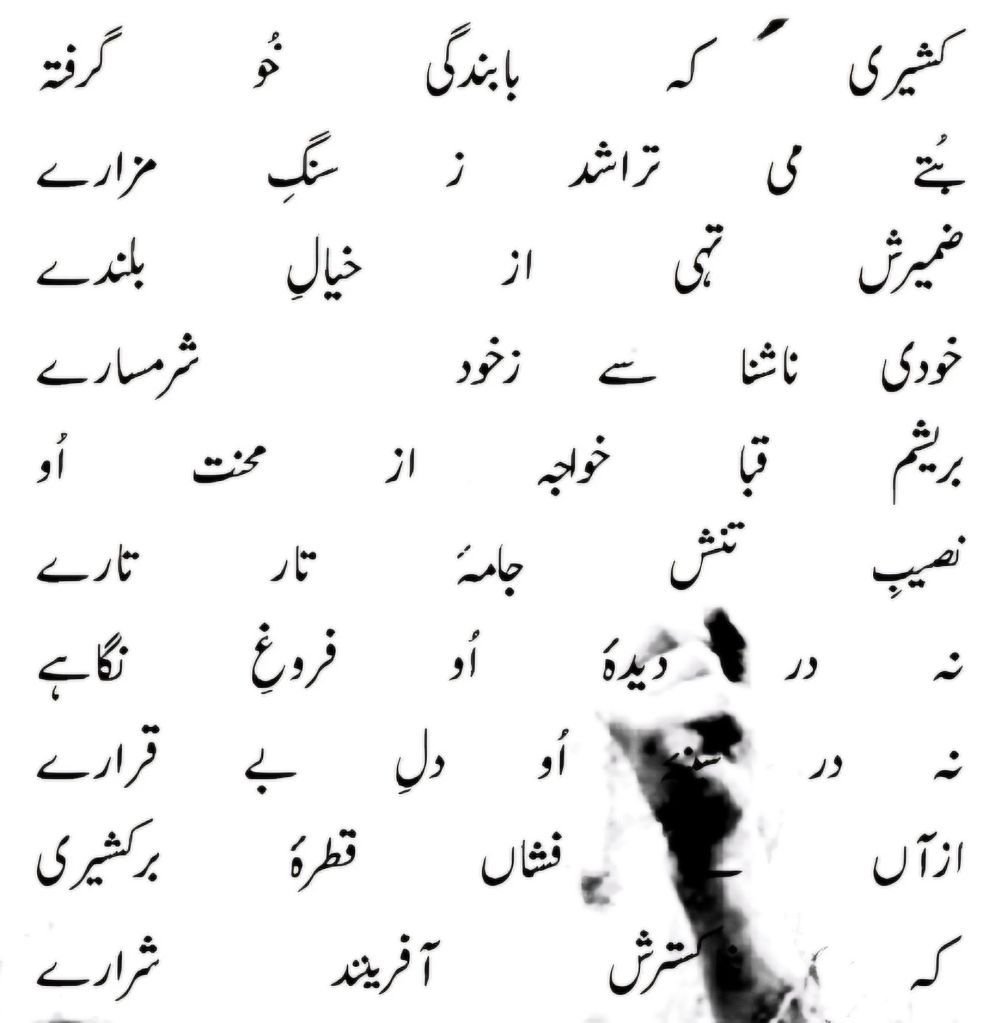 کشیری کہ بابندگی خُو گرفتہ
بُتے می تراشد ز سنگِ مزارے
ضمیرش تہی از خیالِ بلندے
خودی ناشنا سے زخود شرمسارے
بریشم قبا خواجہ از محنت اُو
نصیبِ تنش جامۂ تار تارے
نہ در دیدۂ اُو فروغِ نگاہے
نہ در اُو دلِ بے قرارے
ازآں فشاں قطرۂ برکشیری
کہ آفرینند شرارے